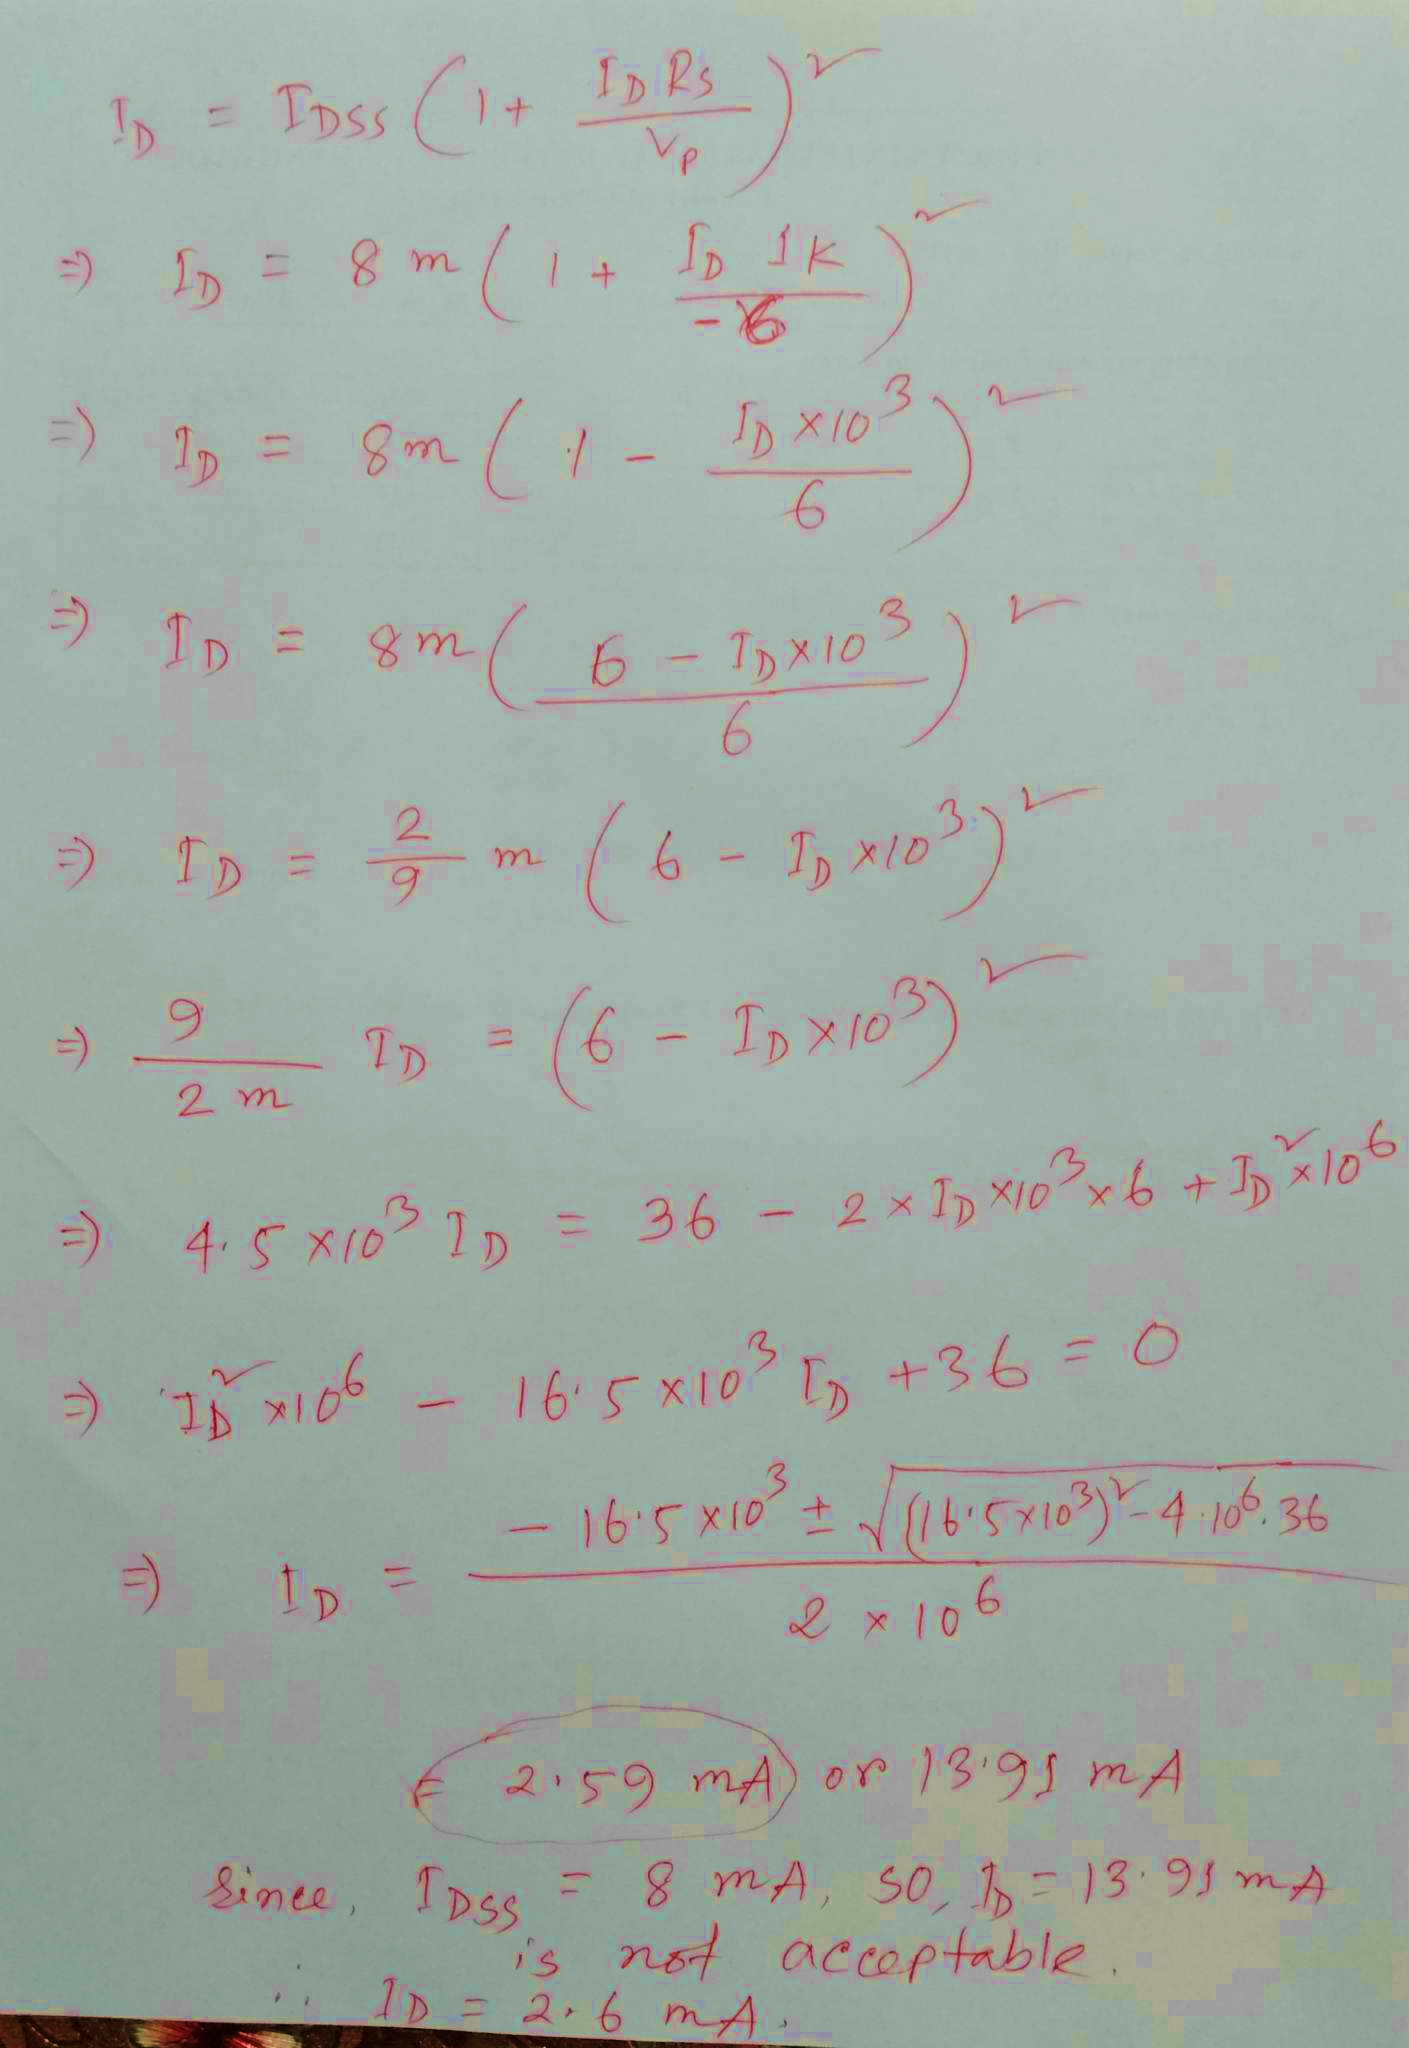 I_D = I_DSS (1 + I_D R_S / V_P)²
⇒ I_D = 8 m (1 + I_D 1K / -6)²
⇒ I_D = 8m (1 - I_D ×10³ / 6)²
⇒ I_D = 8m (6 - I_D×10³ / 6)²
⇒ I_D = 2/9 m (6 - I_D ×10³)²
⇒ 9 / 2 m I_D = (6 - I_D ×10³)²
⇒ 4.5 ×10³ I_D = 36 - 2 × I_D ×10³ ×6 + I_D² ×10⁶
⇒ I_D² ×10⁶ - 16.5 ×10³ I_D + 36 = 0
⇒ I_D = - 16.5 ×10³ ± √((16.5×10³)² - 4.10⁶.36) / 2 × 10⁶
= 2.59 mA or 13.91 mA
Since, I_DSS = 8 mA, so, I_D = 13.91 mA
is not acceptable.
∴ I_D = 2.6 mA.